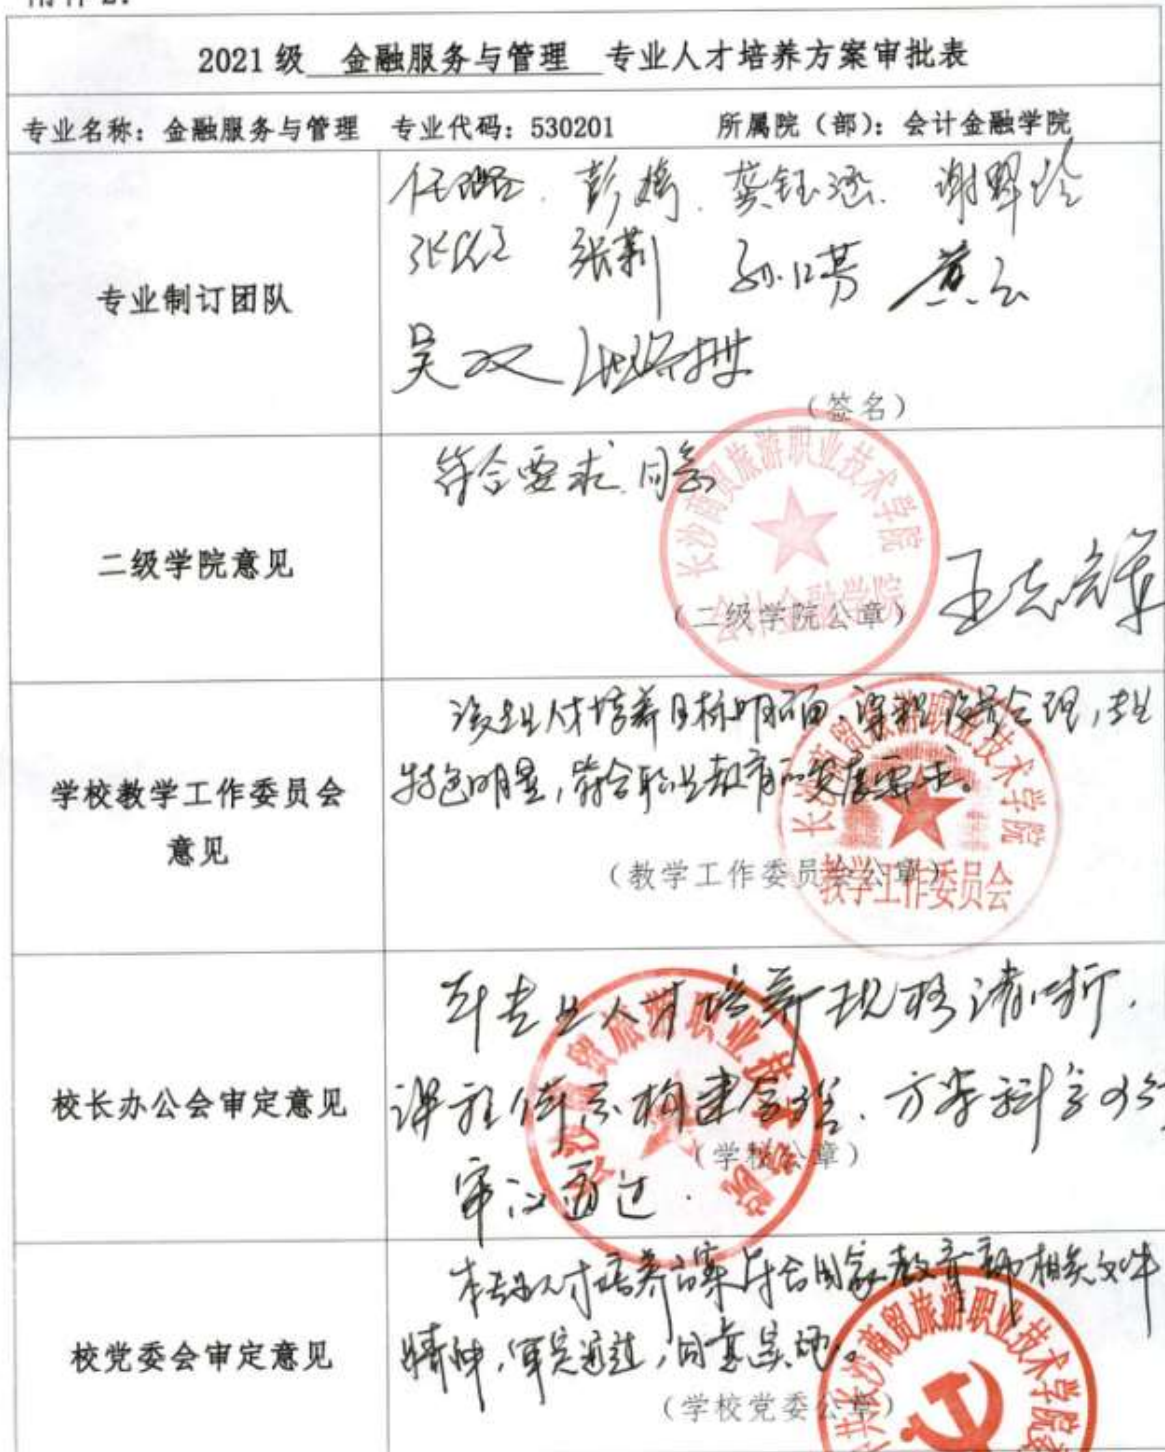 附件 2:
2021 级 金融服务与管理 专业人才培养方案审批表
专业名称：金融服务与管理 专业代码：530201 所属院（部）：会计金融学院
专业制订团队
任璐 彭嫣 龚钰涵 谢翠玲
张莉 黄云
吴双
（签名）
二级学院意见
符合要求、同意
长沙商贸旅游职业技术学院
会计金融学院
（二级学院公章）
学校教学工作委员会
意见
该专业人才培养目标明确，课程设置合理，专业
特色明显，符合职业教育的发展要求。
长沙商贸旅游职业技术学院
教学工作委员会
（教学工作委员会公章）
校长办公会审定意见
本专业人才培养规格清晰，
课程体系构建合理、方案科学可行
审议通过.
长沙商贸旅游职业技术学院
（学校公章）
校党委会审定意见
本专业人才培养方案符合国家教育部相关文件
精神，审定通过，同意实施。
中共长沙商贸旅游职业技术学院
（学校党委公章）